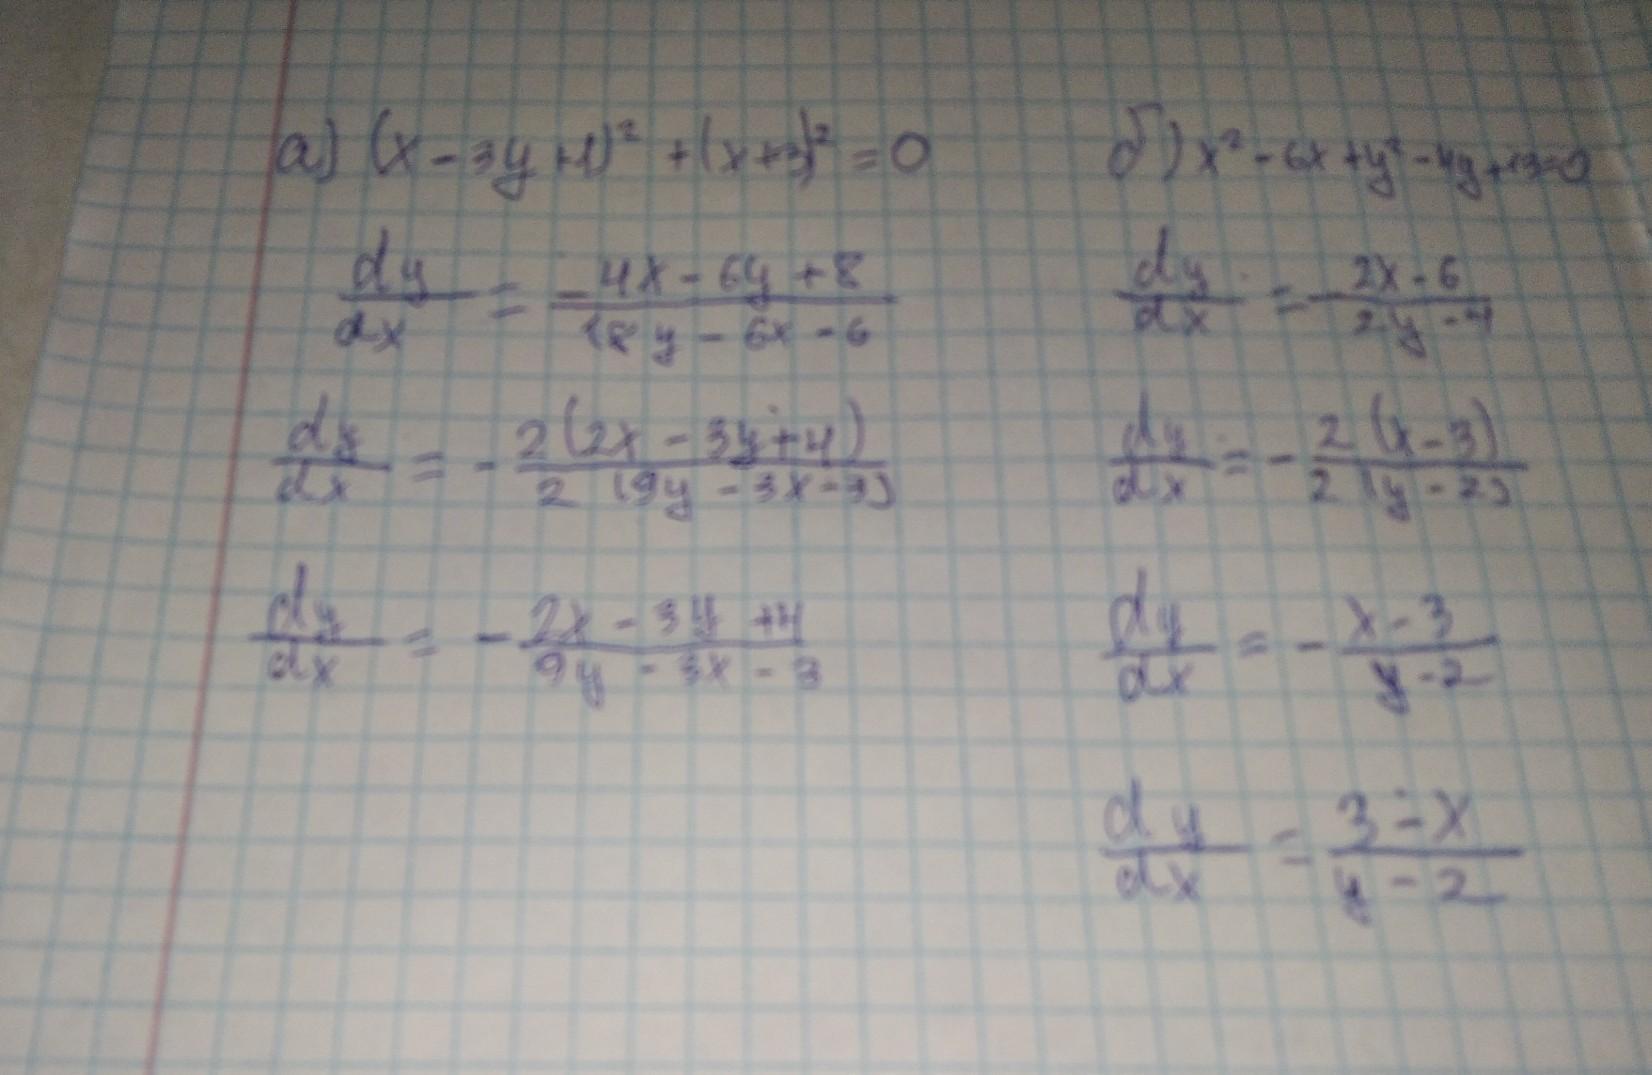 а) (x - 3y + 1)² + (x + 3)² = 0
dy/dx = - (4x - 6y + 8)/(18y - 6x - 6)
dy/dx = - 2(2x - 3y + 4)/2(9y - 3x - 3)
dy/dx = - (2x - 3y + 4)/(9y - 3x - 3)
б) x² - 6x + y² - 4y + 13 = 0
dy/dx = - (2x - 6)/(2y - 4)
dy/dx = - 2(x - 3)/2(y - 2)
dy/dx = - (x - 3)/(y - 2)
dy/dx = (3 - x)/(y - 2)